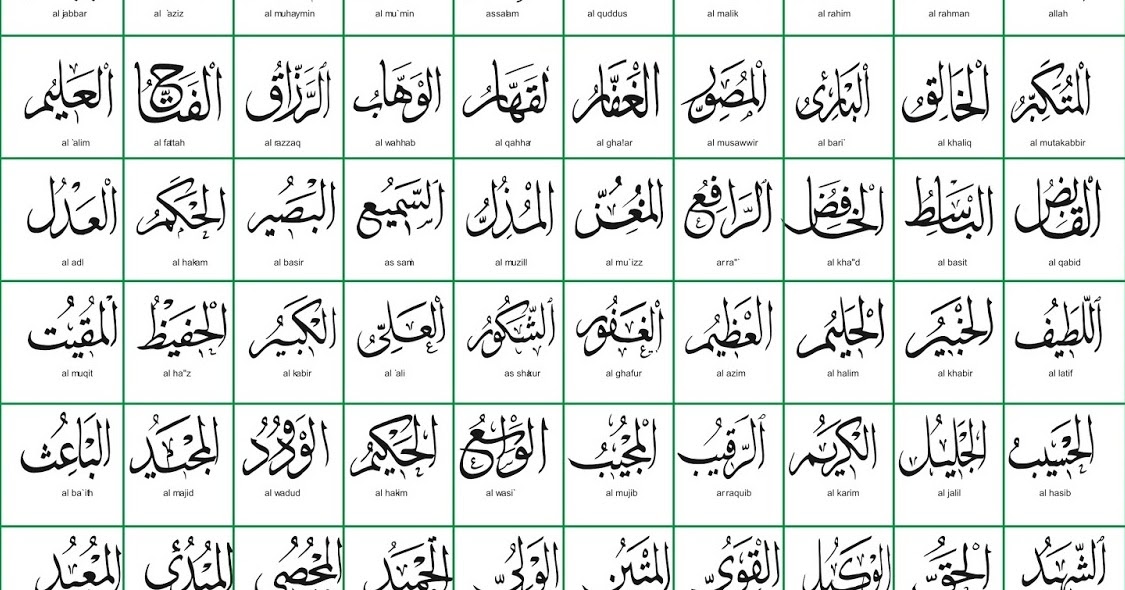 al jabbar al `aziz al muhaymin al mu`min assalam al quddus al malik al rahim al rahman allah
المتكبر الخالق البارئ المصور الغفار لقهار الوهاب الرزاق الفتاح العليم
al `alim al fattah al razzaq al wahhab al qahhar al gha!ar al musawwir al bari` al khaliq al mutakabbir
القابض الباسط الخافض الرافع المعز المذل السميع البصير الحكم العدل
al adl al hakam al basir as sami al muzill al mu`izz arra"` al kha"d al basit al qabid
اللطيف الخبير الحليم العظيم الغفور الشكور العلي الكبير الحفيظ المقيت
al muqit al ha"z al kabir al `ali as shakur al ghafur al azim al halim al khabir al latif
الحسيب الجليل الكريم الرقيب المجيب الواسع الحكيم الودود المجيد الباعث
al ba`ith al majid al wadud al hakim al wasi` al mujib arraquib al karim al jalil al hasib
الشهيد الحق الوكيل القوي المتين الولي الحميد المحصي المبدئ المعيد